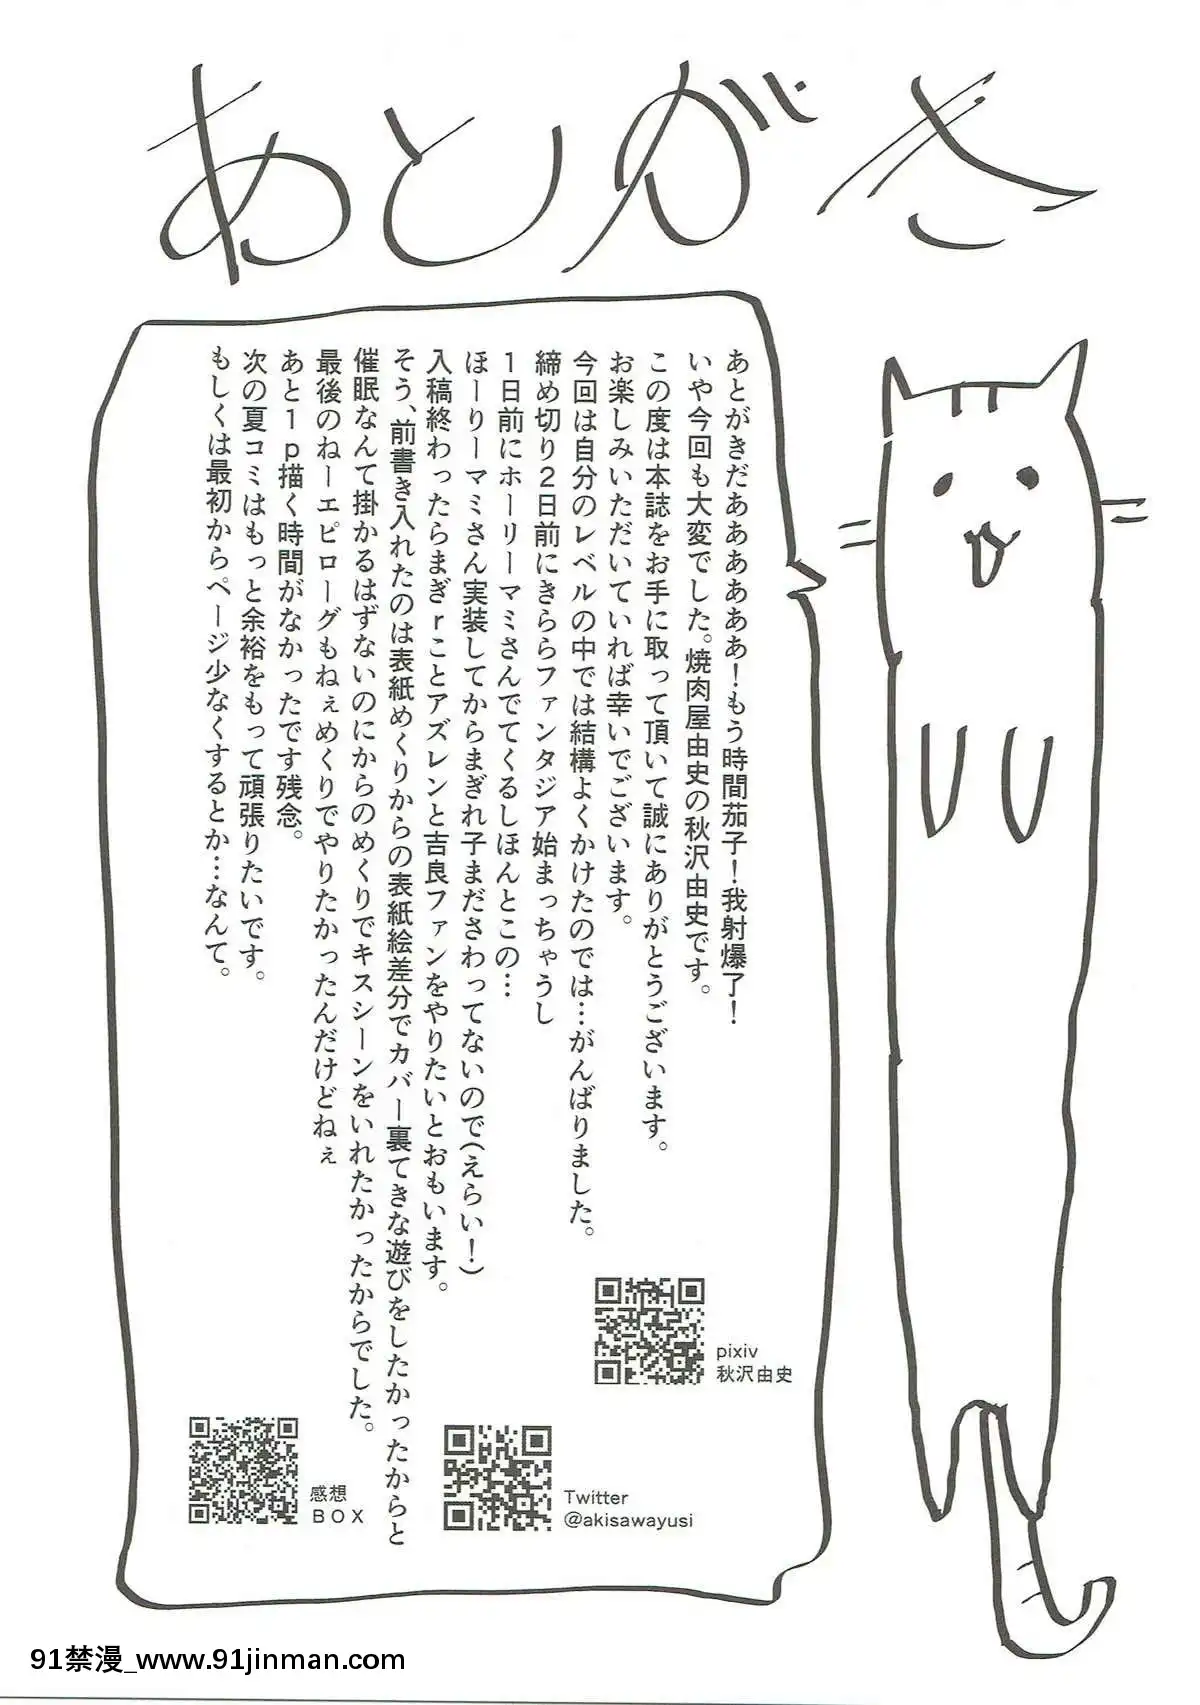 あとがき
あとがきだあああああ！もう時間茄子！我射爆了！
いや今回も大変でした。焼肉屋由史の秋沢由史です。
この度は本誌をお手に取って頂いて誠にありがとうございます。
お楽しみいただいていれば幸いでございます。
今回は自分のレベルの中では結構よくかけたのでは…がんばりました。
締め切り２日前にきららファンタジア始まっちゃうし
１日前にホーリーマミさんでてくるしほんとこの…
ほーりーマミさん実装してからまぎれ子まださわってないので(えらい！)
入稿終わったらまぎｒことアズレンと吉良ファンをやりたいとおもいます。
そう、前書き入れたのは表紙めくりからの表紙絵差分でカバー裏てきな遊びをしたかったからと
催眠なんて掛かるはずないのにからのめくりでキスシーンをいれたかったからでした。
最後のねーエピローグもねぇめくりでやりたかったんだけどねぇ
あと１ｐ描く時間がなかったです残念。
次の夏コミはもっと余裕をもって頑張りたいです。
もしくは最初からページ少なくするとか…なんて。
pixiv
秋沢由史
Twitter
@akisawayusi
感想
ＢＯＸ
91禁漫_www.91jinman.com